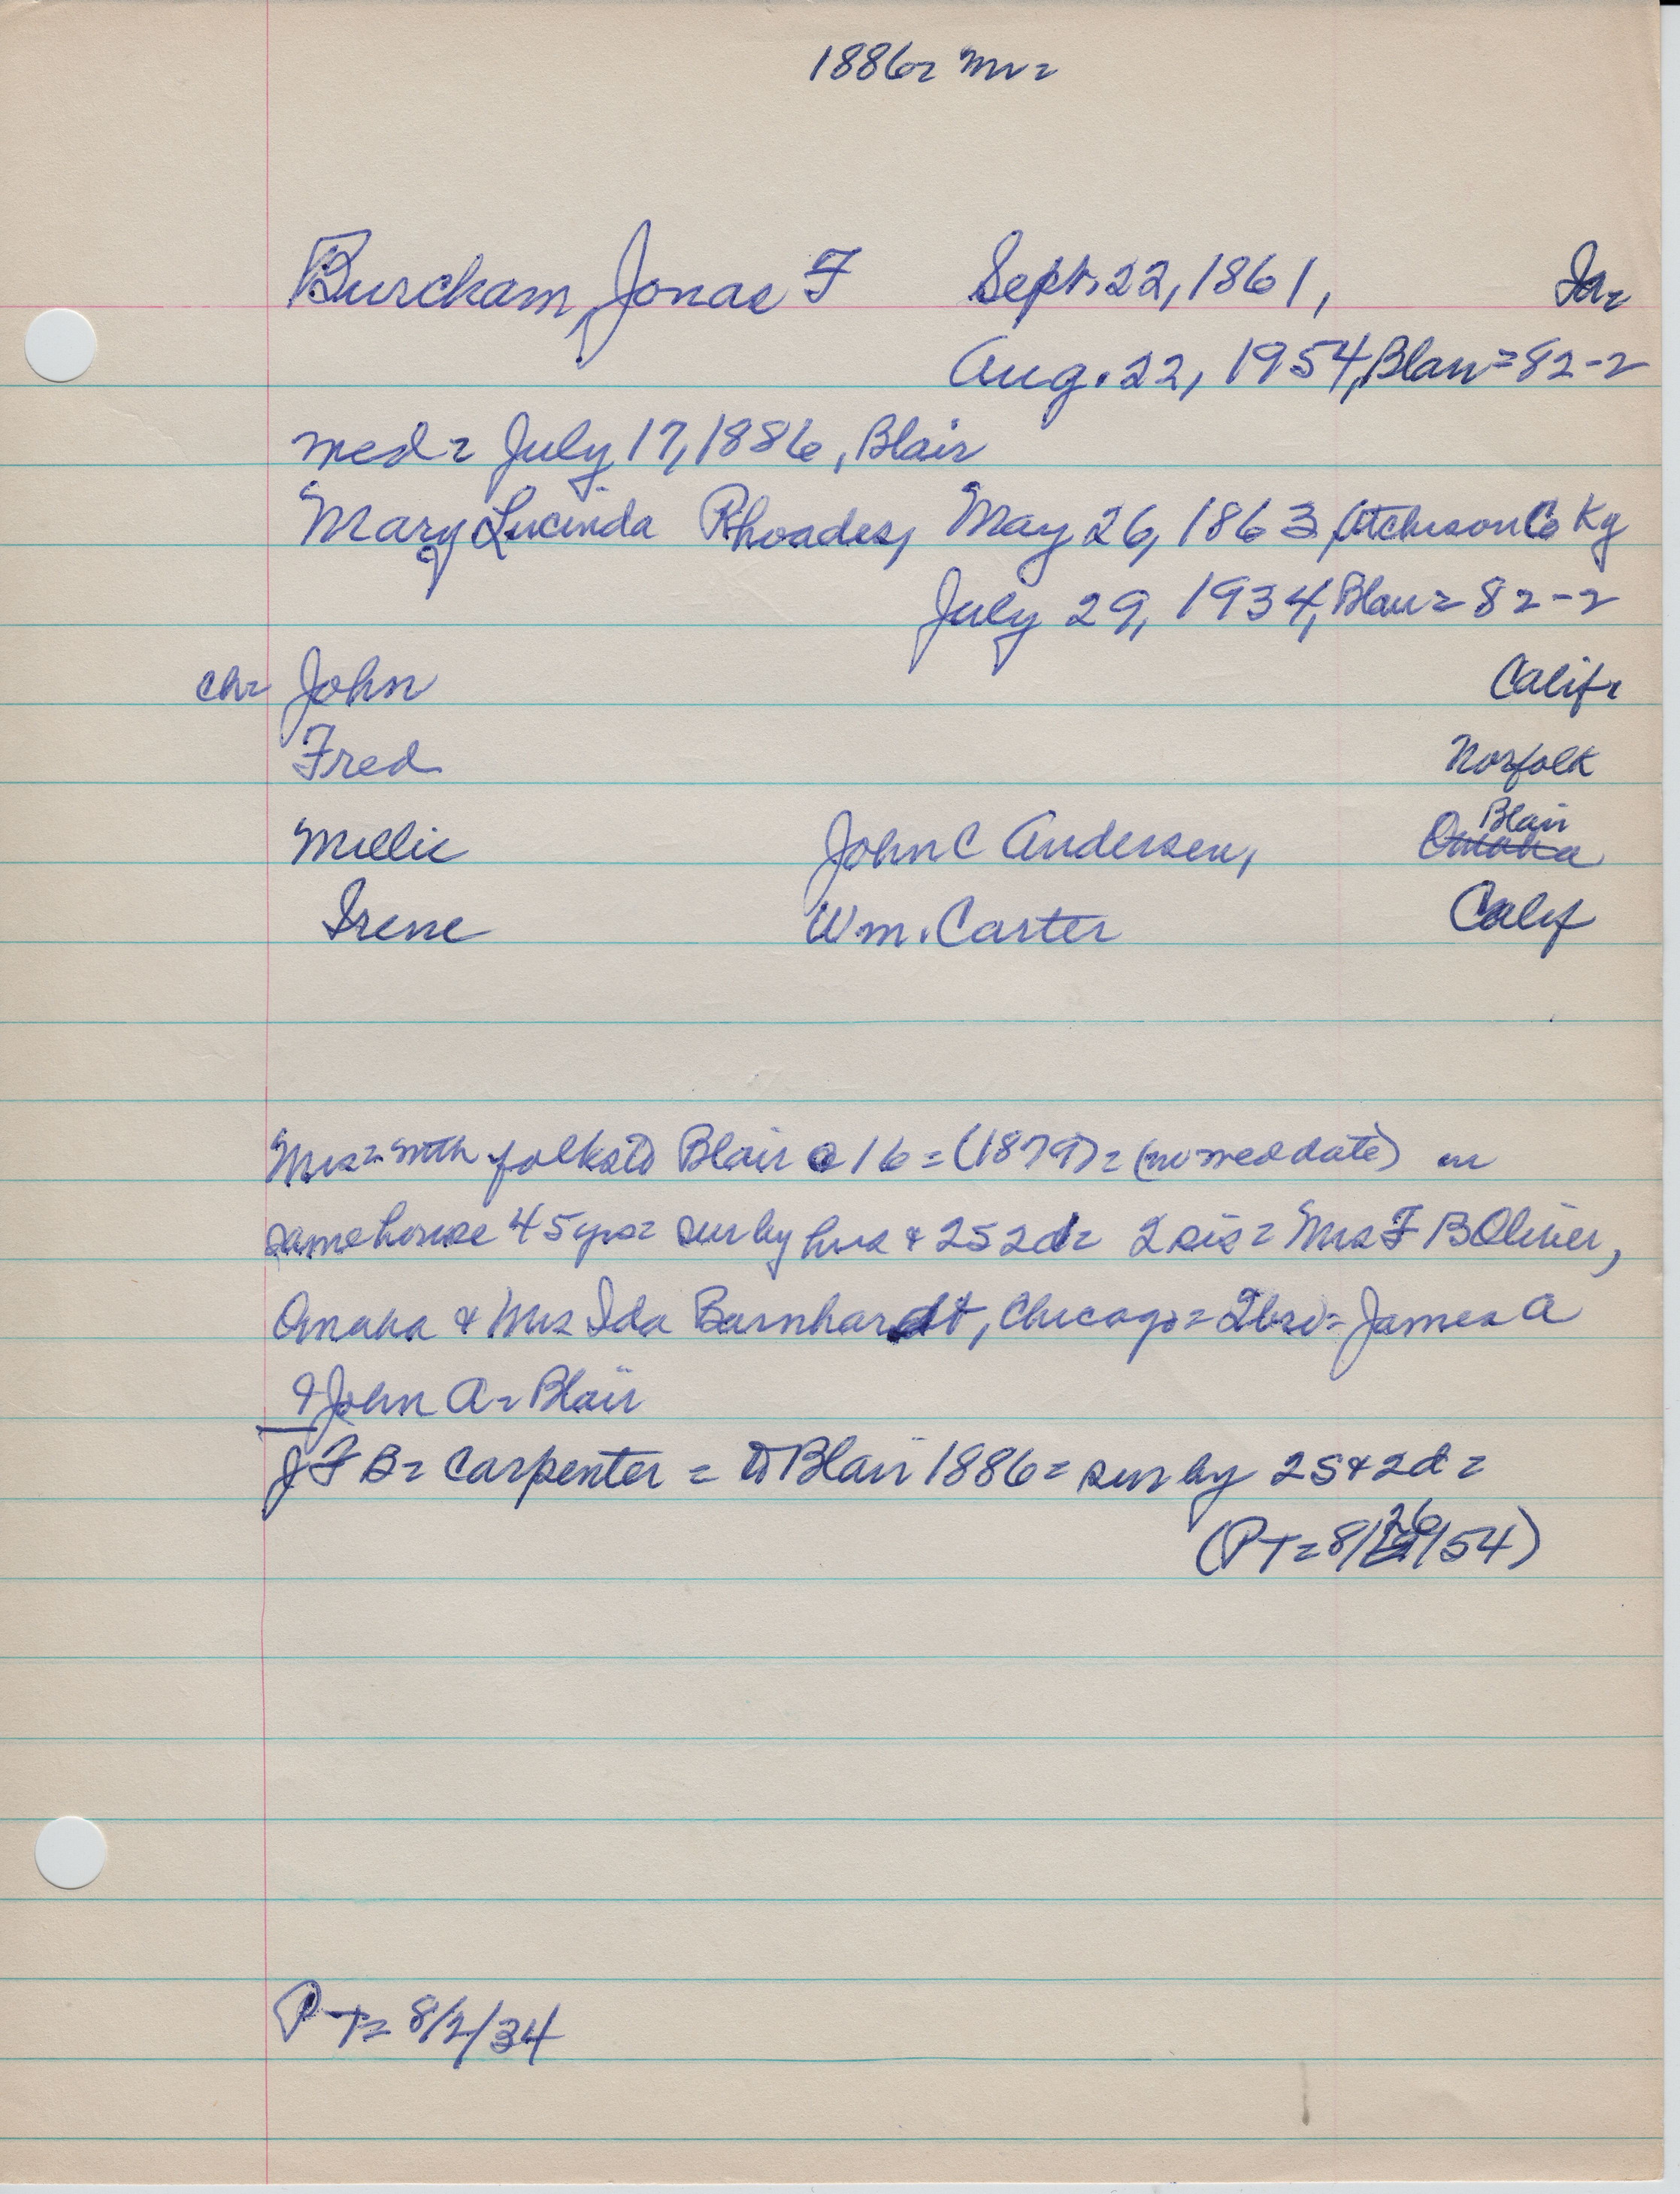 1886= mr=
Burcham, Jonas F Sept. 22, 1861, Ia=
Aug. 22, 1954, Blair = 82-2
med = July 17, 1886, Blair
Mary Lucinda Rhoades, May 26, 1863, Atchison Co Ks
July 29, 1934, Blair = 82-2
ch= John Calif=
Fred Norfolk
Millie John C Andersen, Omaha Blair
Irene Wm. Carter Calif
Mrs = with folks to Blair @ 16 = (1879) = (no med date) in
same house 45 yrs = sur by hus & 2s 2d = 2 sis = Mrs F B Oliver,
Omaha & Mrs Ida Barnhardt, Chicago = 2 bro = James A
& John A = Blair
J F B = Carpenter = to Blair 1886 = sur by 2s & 2d =
(PT = 8/26/54)
PT = 8/2/34